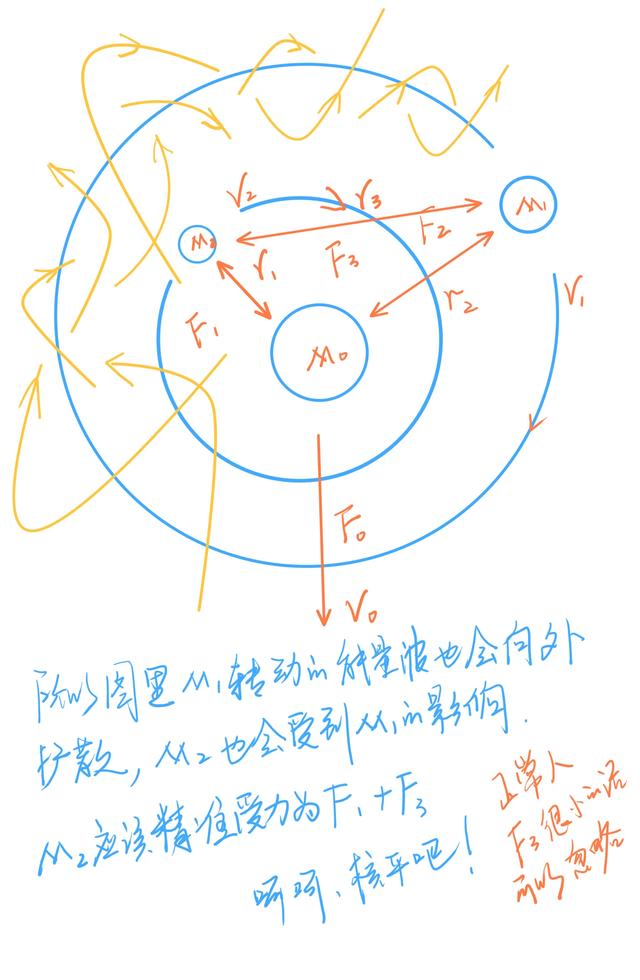 V₂
r₃
M₁
M₂
F₂
r₁
F₃
r₂
V₁
F₁
M₀
F₀
V₀
所以图里M₁转动的能量波也会向外
扩散，M₂也会受到M₁的影响.
M₂应该精准受力为F₁+F₃
呵呵、核平吧！
正常人
F₃很小的话
所以忽略